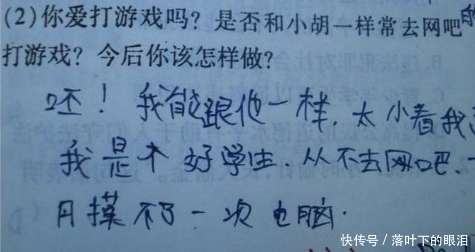 (2)你爱打游戏吗？是否和小胡一样常去网吧
打游戏？今后你该怎样做？
呸！我能跟他一样，太小看我
我是好学生．从不去网吧．
月摸不了一次电脑．
快传号/落叶下的眼泪